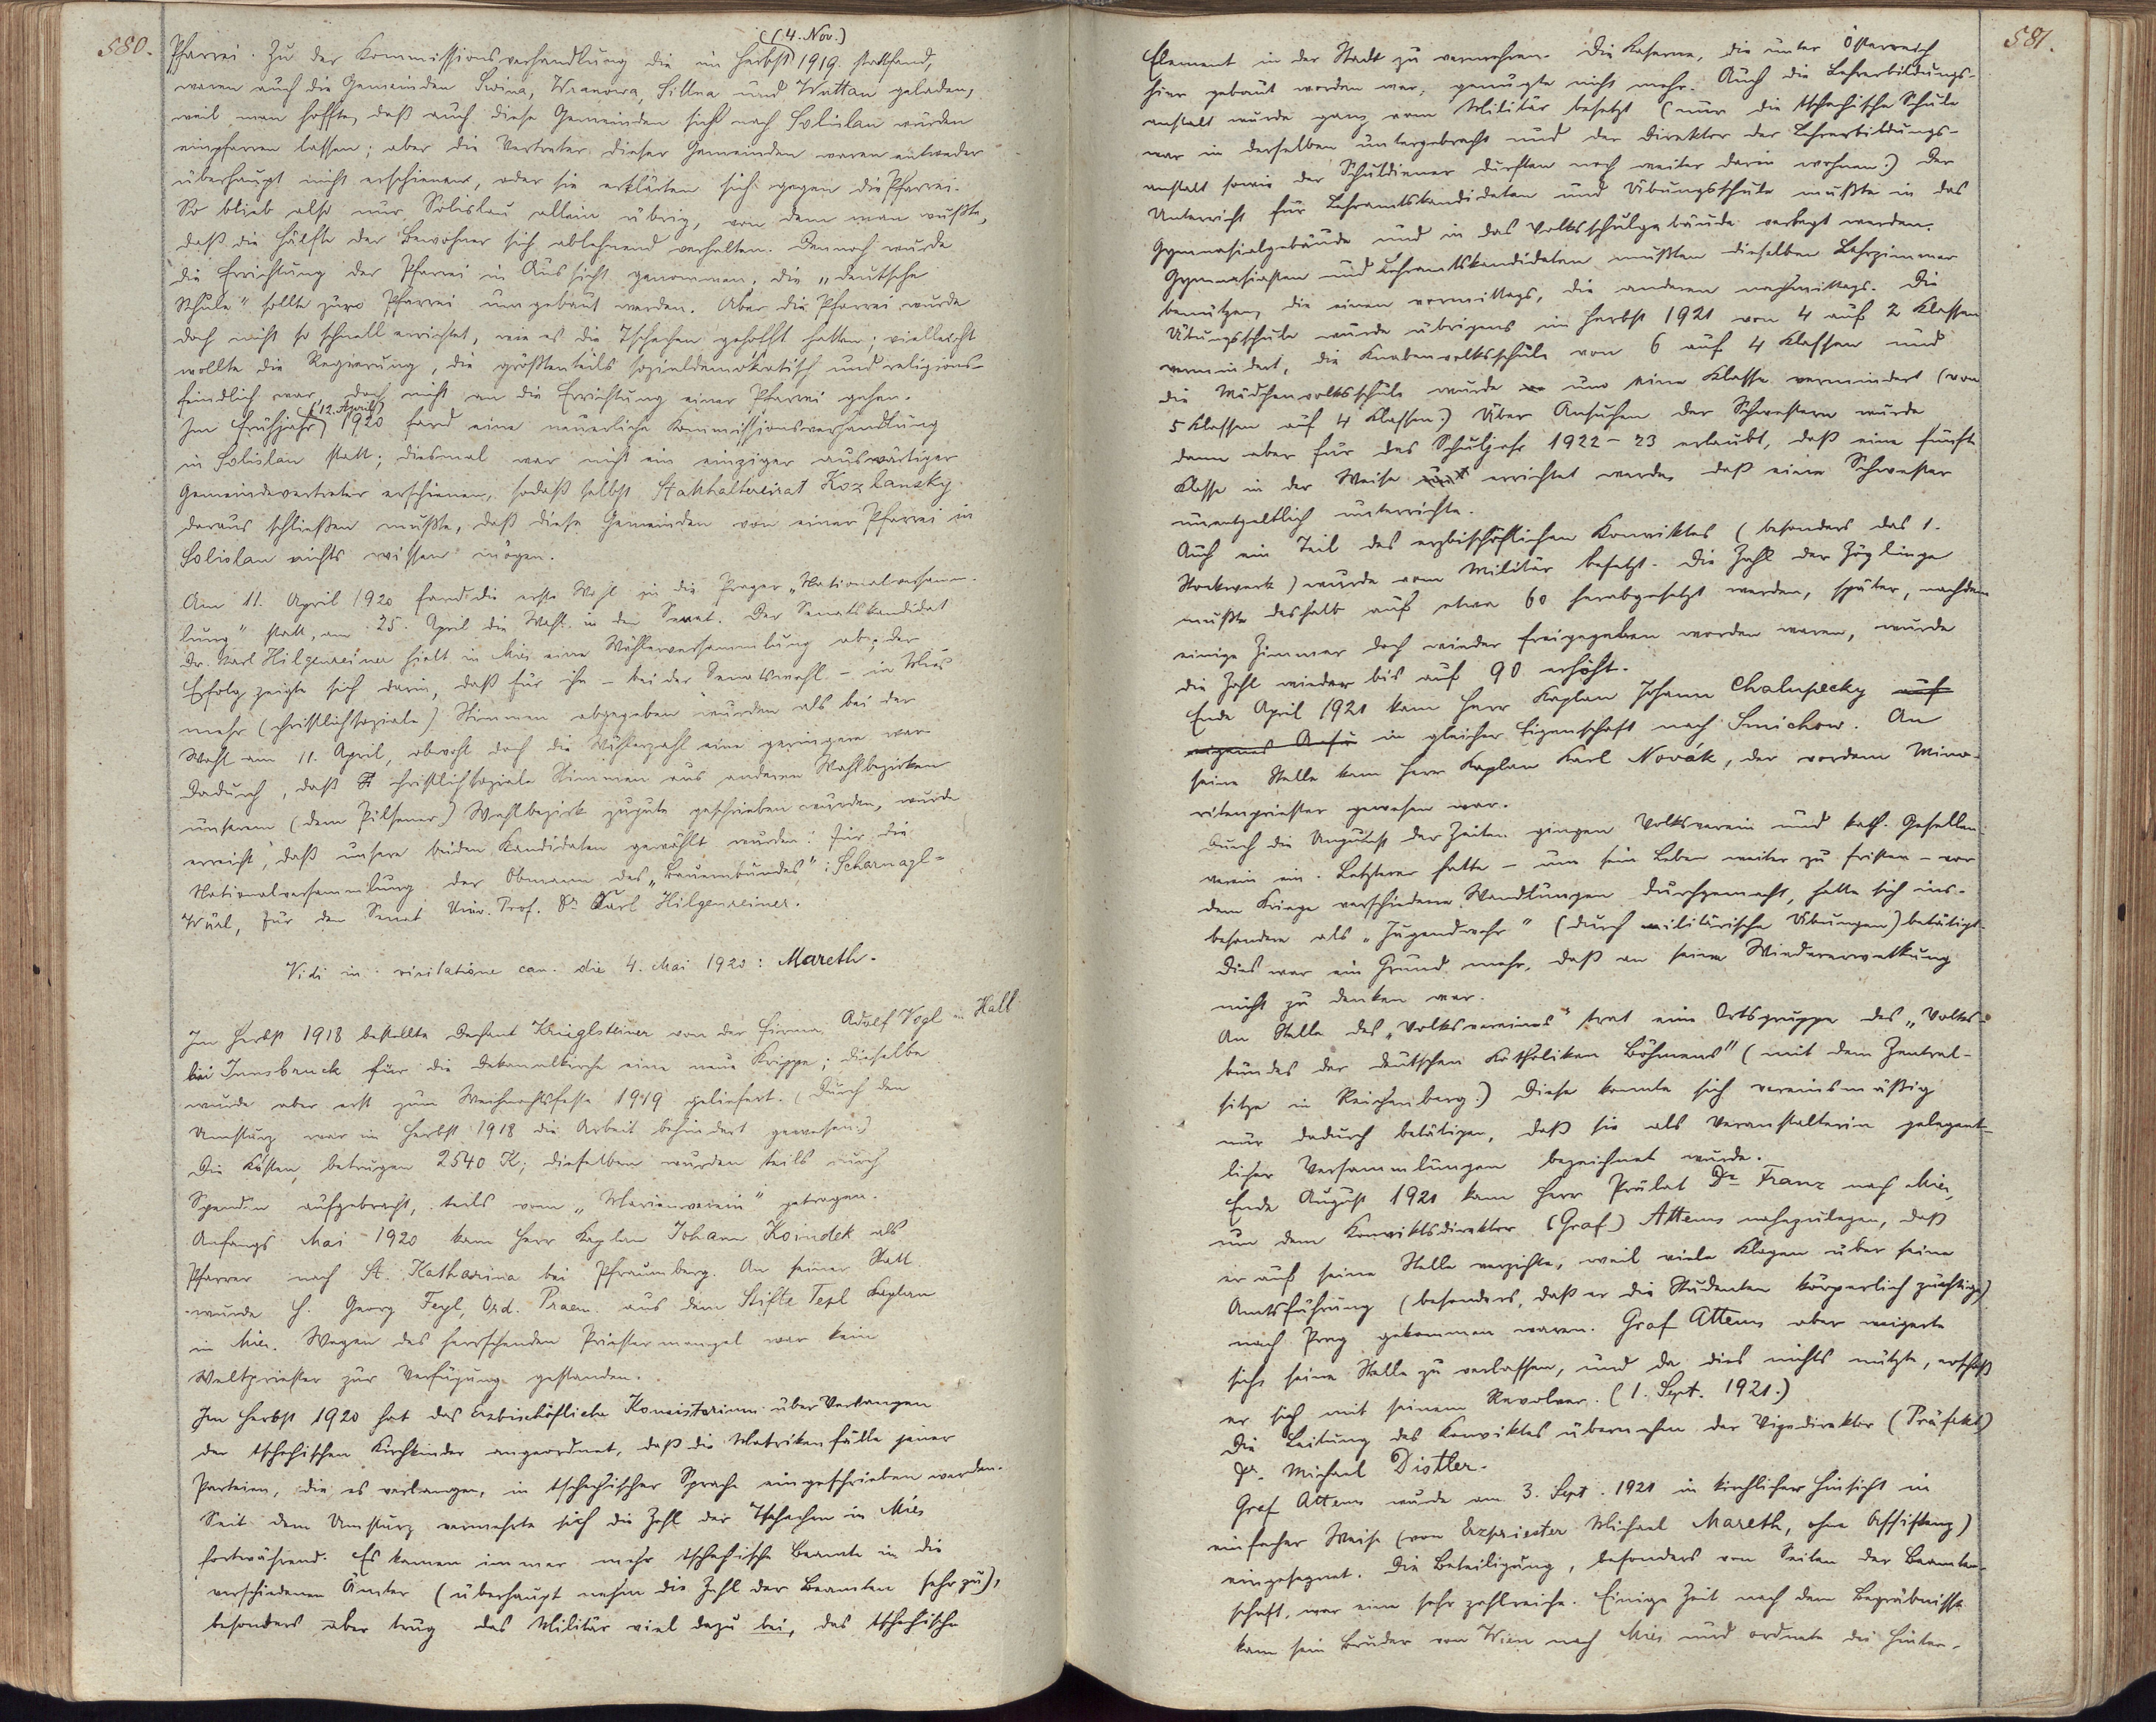 580.
Pfarrei. Zu der Kommissionsverhandlung die im Herbst (4. Nov.) 1919 stattfand,
waren auch die Gemeinden Swina, Wranowa, Sittna und Wuttau geladen,
weil man hoffte, daß auch diese Gemeinden sich nach Solislau würden
einpfarren lassen; aber die Vertreter dieser Gemeinden waren entweder
überhaupt nicht erschienen, oder sie erklärten sich gegen die Pfarrei.
So blieb also nur Solislau allein übrig, von dem man wußte,
daß die Hälfte der Bewohner sich ablehnend verhalten. Dennoch wurde
die Errichtung der Pfarrei in Aussicht genommen, die „deutsche
Schule" sollte zur Pfarrei umgebaut werden. Aber die Pfarrei wurde
doch nicht so schnell errichtet, wie es die Tschechen gehofft hatten; vielleicht
wollte die Regierung, die größtenteils sozialdemokratisch und religions-
feindlich war, doch nicht an die Errichtung einer Pfarrei gehen.
Im Frühjahr (12. April) 1920 fand eine neuerliche Kommissionsverhandlung
in Solislau statt; diesmal war nicht ein einziger auswärtiger
Gemeindevertreter erschienen, sodaß selbst Statthaltereirat Kozlansky
daraus schließen mußte, daß diese Gemeinden von einer Pfarrei in
Solislau nichts wissen mögen.
Am 11. April 1920 fand die erste Wahl in die Prager „Nationalversamm-
lung" statt, am 25. April die Wahl in den Senat. Der Senatskandidat
Dr. Karl Hilgenreiner hielt in Mies eine Wählerversammlung ab; der
Erfolg zeigte sich darin, daß für ihn – bei der Senatswahl – in Mies
mehr (christlichsoziale) Stimmen abgegeben wurden als bei der
Wahl am 11. April, obwohl doch die Wählerzahl eine geringere war.
Dadurch, daß christlichsoziale Stimmen aus anderen Wahlbezirken
unserem (dem Pilsener) Wahlbezirk zugute geschrieben wurden, wurde
erreicht, daß unsere beiden Kandidaten gewählt wurden: für die
Nationalversammlung der Obmann des „Bauernbundes": Scharnagl-
Würl, für den Senat Univ. Prof. Dr Karl Hilgenreiner.
Vidi in visitatione can. die 4. Mai 1920: Mareth.
Im Herbst 1918 bestellte Dechant Krüglsteiner von der Firma Adolf Vogl in Hall
bei Innsbruck für die Dekanalkirche eine neue Krippe; dieselbe
wurde aber erst zum Weihnachtsfeste 1919 geliefert. (Durch den
Umsturz war im Herbst 1918 die Arbeit behindert gewesen.)
Die Kosten betrugen 2540 K; dieselben wurden teils durch
Spenden aufgebracht, teils vom „Marienverein" getragen.
Anfangs Mai 1920 kam Herr Kaplan Johann Koindek als
Pfarrer nach St. Katharina bei Pfraumberg. An seiner Statt
wurde H. Georg Feyl, Ord. Praem. aus dem Stifte Tepl Kaplan
in Mies. Wegen des herrschenden Priestermangel war kein
Weltpriester zur Verfügung gestanden.
Im Herbst 1920 hat das Erzbischöfliche Konsistorium über Verlangen
der tschechischen Kirchkinder angeordnet, daß die Matrikenfälle jener
Parteien, die es verlangen, in tschechischer Sprache eingeschrieben werden.
Seit dem Umsturz vermehrte sich die Zahl der Tschechen in Mies
fortwährend. Es kamen immer mehr tschechische Beamte in die
verschiedenen Ämter (überhaupt nahm die Zahl der Beamten sehr zu),
besonders aber trug das Militär viel dazu bei, das tschechische
581.
Element in der Stadt zu vermehren. Die Kaserne, die unter Österreich
hier gebaut worden war, genügte nicht mehr. Auch die Lehrerbildungs-
anstalt wurde ganz vom Militär besetzt (nur die tschechische Schule
war in derselben untergebracht und der Direktor der Lehrerbildungs-
anstalt sowie der Schuldiener durften noch weiter darin wohnen.) Der
Unterricht für Lehramtskandidaten und Übungsschule mußte in das
Gymnasialgebäude und in das Volksschulgebäude verlegt werden.
Gymnasiasten und Lehramtskandidaten mußten dieselben Lehrzimmer
benützen, die einen vormittags, die anderen nachmittags. Die
Übungsschule wurde übrigens im Herbst 1921 von 4 auf 2 Klassen
vermindert, die Knabenvolksschule von 6 auf 4 Klassen und
die Mädchenvolksschule wurde um eine Klasse vermindert (von
5 Klassen auf 4 Klassen.) Über Ansuchen der Schwestern wurde
dann aber für das Schuljahr 1922–23 erlaubt, daß eine fünfte
Klasse in der Weise errichtet werde, daß eine Schwester
unentgeltlich unterrichte.
Auch ein Teil des erzbischöflichen Konviktes (besonders das 1.
Stockwerk) wurde vom Militär besetzt. Die Zahl der Zöglinge
mußte deshalb auf etwa 60 herabgesetzt werden, später, nachdem
einige Zimmer doch wieder freigegeben worden waren, wurde
die Zahl wieder bis auf 90 erhöht.
Ende April 1921 kam Herr Kaplan Johann Chalupecky auf
eigenes Ansu in gleicher Eigenschaft nach Smichow. An
seine Stelle kam Herr Kaplan Karl Novák, der vordem Mino-
ritenpriester gewesen war.
Durch die Ungunst der Zeiten gingen Volksverein und kath. Gesellen-
verein ein. Letzterer hatte – um sein Leben weiter zu fristen – vor
dem Kriege verschiedene Wandlungen durchgemacht, hatte sich ins-
besondere als „Jugendwehr" (durch militärische Übungen) betätigt.
Dies war ein Grund mehr, daß an seine Wiedererweckung
nicht zu denken war.
An Stelle des „Volksvereines" trat eine Ortsgruppe des „Volks-
bundes der deutschen Katholiken Böhmens" (mit dem Zentral-
sitze in Reichenberg.) Diese konnte sich vereinsmäßig
nur dadurch betätigen, daß sie als Veranstalterin gelegent-
licher Versammlungen bezeichnet wurde.
Ende August 1921 kam Herr Prälat Dr Franz nach Mies,
um dem Konviktsdirektor (Graf) Attems nahezulegen, daß
er auf seine Stelle verzichte, weil viele Klagen über seine
Amtsführung (besonders, daß er die Studenten körperlich züchtige)
nach Prag gekommen waren. Graf Attems aber weigerte
sich, seine Stelle zu verlassen, und da dies nichts nützte, erschoß
er sich mit seinem Revolver. (1. Sept. 1921.)
Die Leitung des Konviktes übernahm der Vizedirektor (Präfekt)
Dr. Michael Distler.
Graf Attems wurde am 3. Sept. 1921 in kirchlicher Hinsicht in
einfacher Weise (von Erzpriester Michael Mareth, ohne Assistenz)
eingesegnet. Die Beteiligung, besonders von Seiten der Beamten-
schaft, war eine sehr zahlreiche. Einige Zeit nach dem Begräbnisse
kam sein Bruder von Wien nach Mies und ordnete die Hinter-